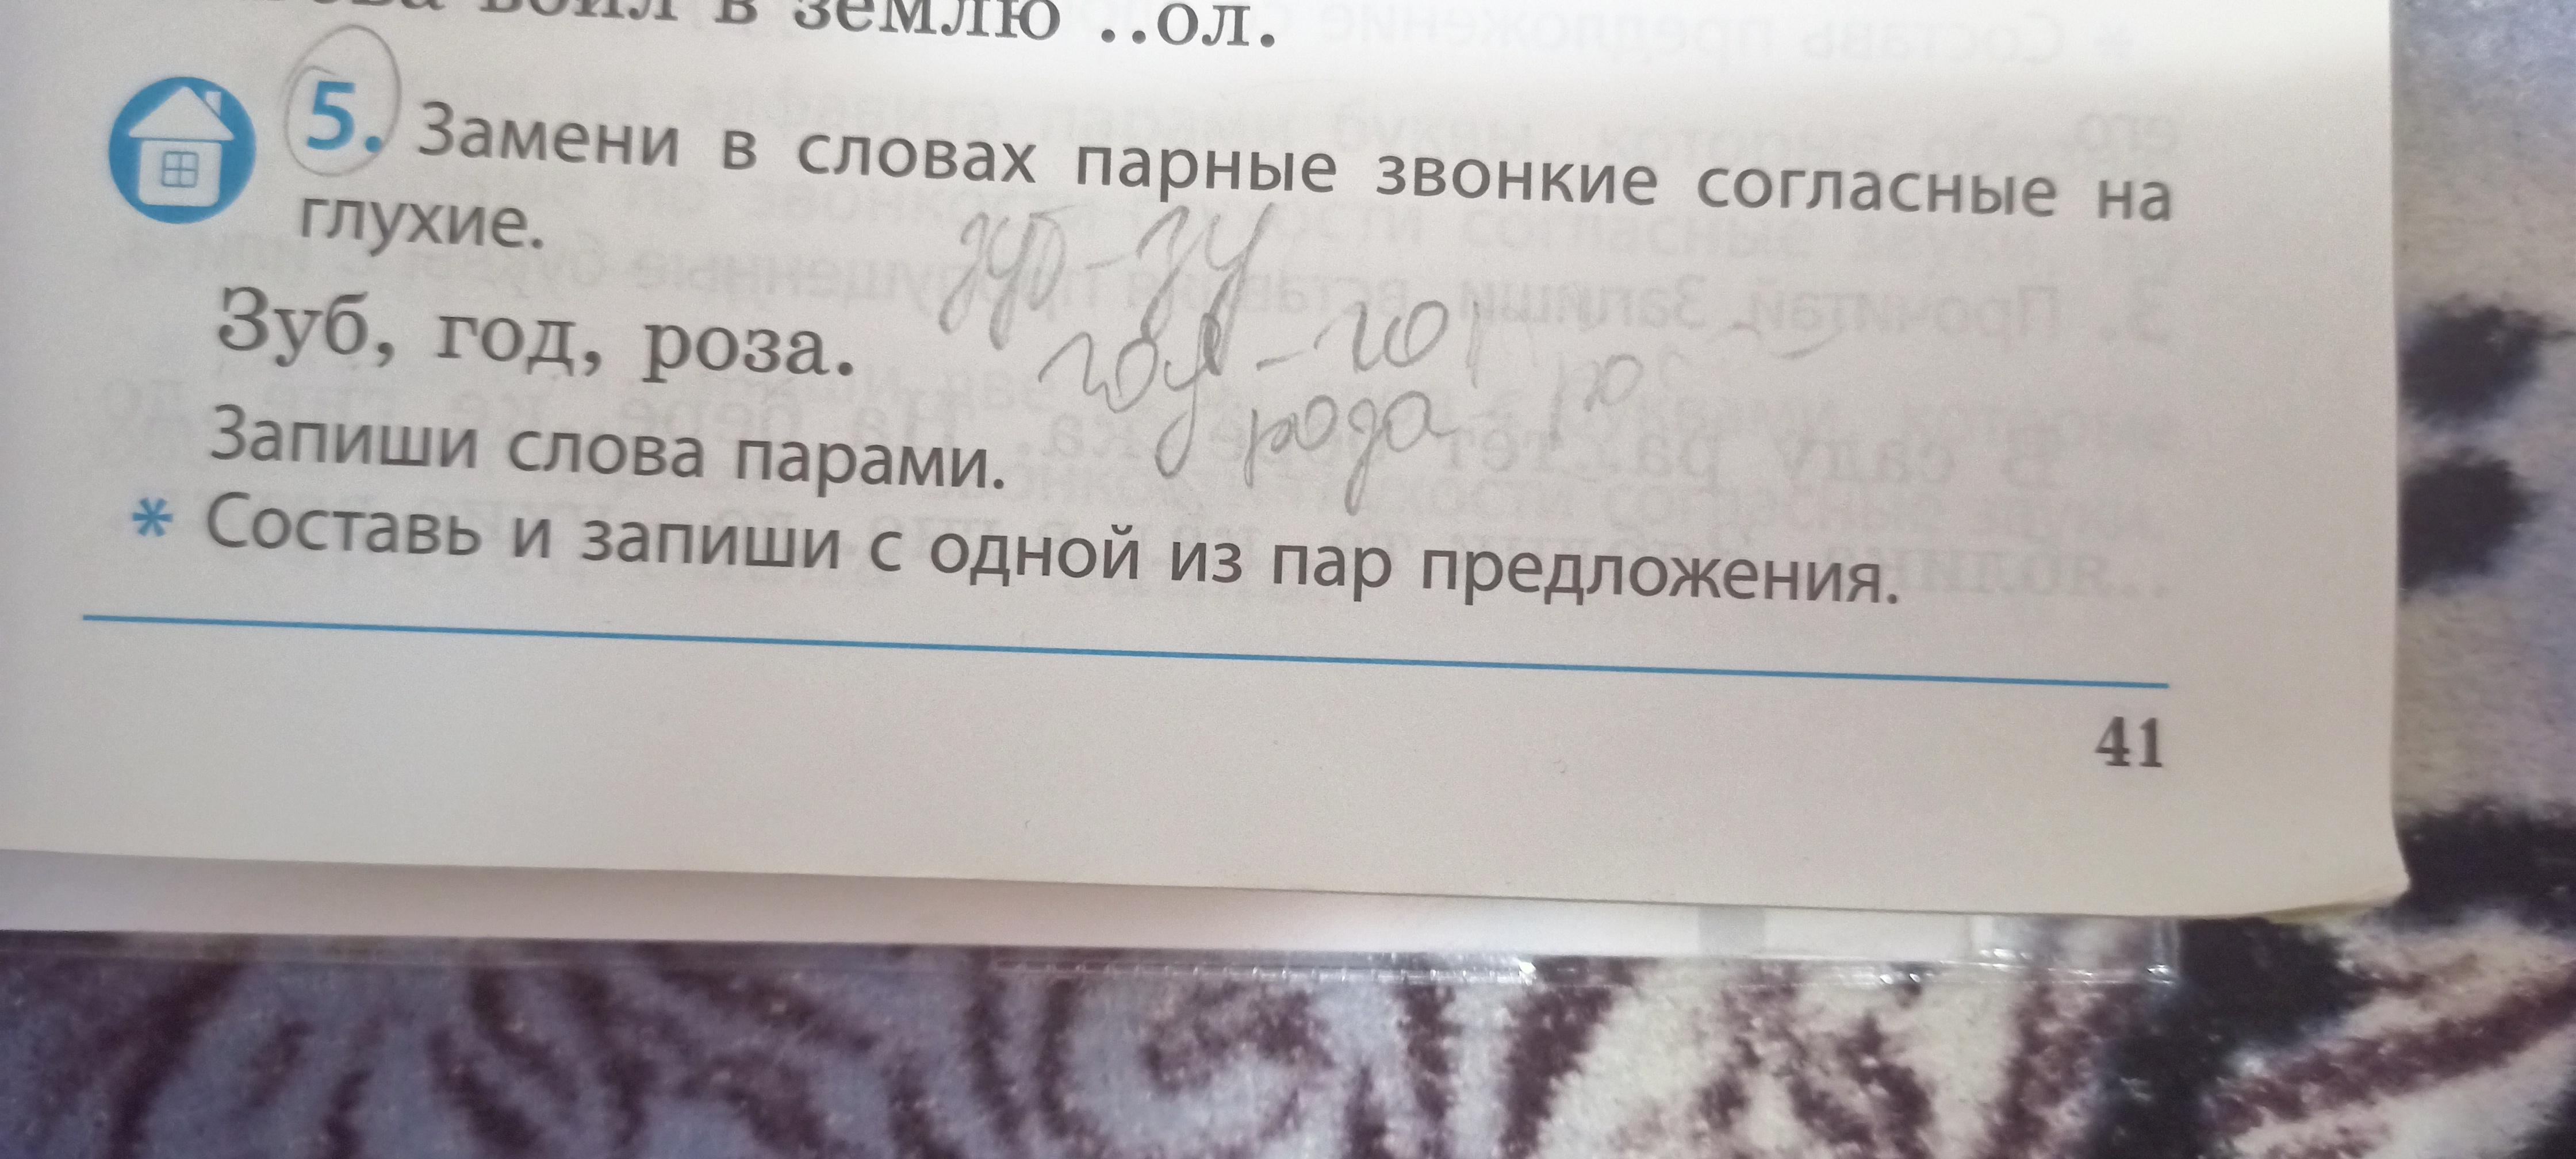 воил в землю ..ол.
5. Замени в словах парные звонкие согласные на
глухие.
зуб - зу
Зуб, год, роза.
год - го
роза ро
Запиши слова парами.
* Составь и запиши с одной из пар предложения.
41